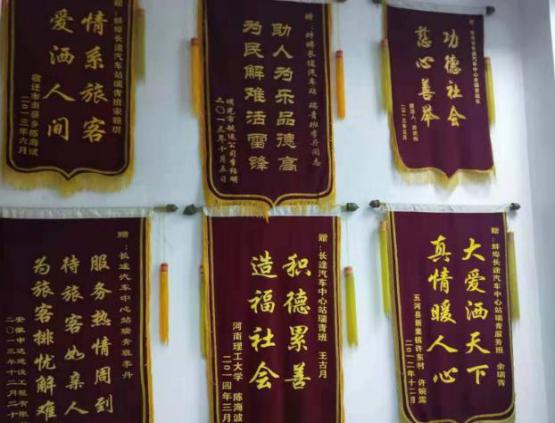 赠：蚌埠长途汽车站瑞青班
情系旅客
爱洒人间
二〇一三年六月
赠：蚌埠长途汽车站 瑞青班李丹同志
助人为乐品德高
为民解难活雷锋
二〇一三年十月五日
功德社会
慈心善举
赠：长途汽车中心站瑞青班李丹
服务热情周到
待旅客如亲人
为旅客排忧解难
二〇一三年十二月二十
赠：长途汽车中心站瑞青班 王古月
积德累善
造福社会
河南理工大学 陈海波
二〇一四年三月
赠：蚌埠长途汽车中心站瑞青服务班 余瑞青
大爱洒天下
真情暖人心
五河县新集镇许东村 许婉露
二〇一二年十二月